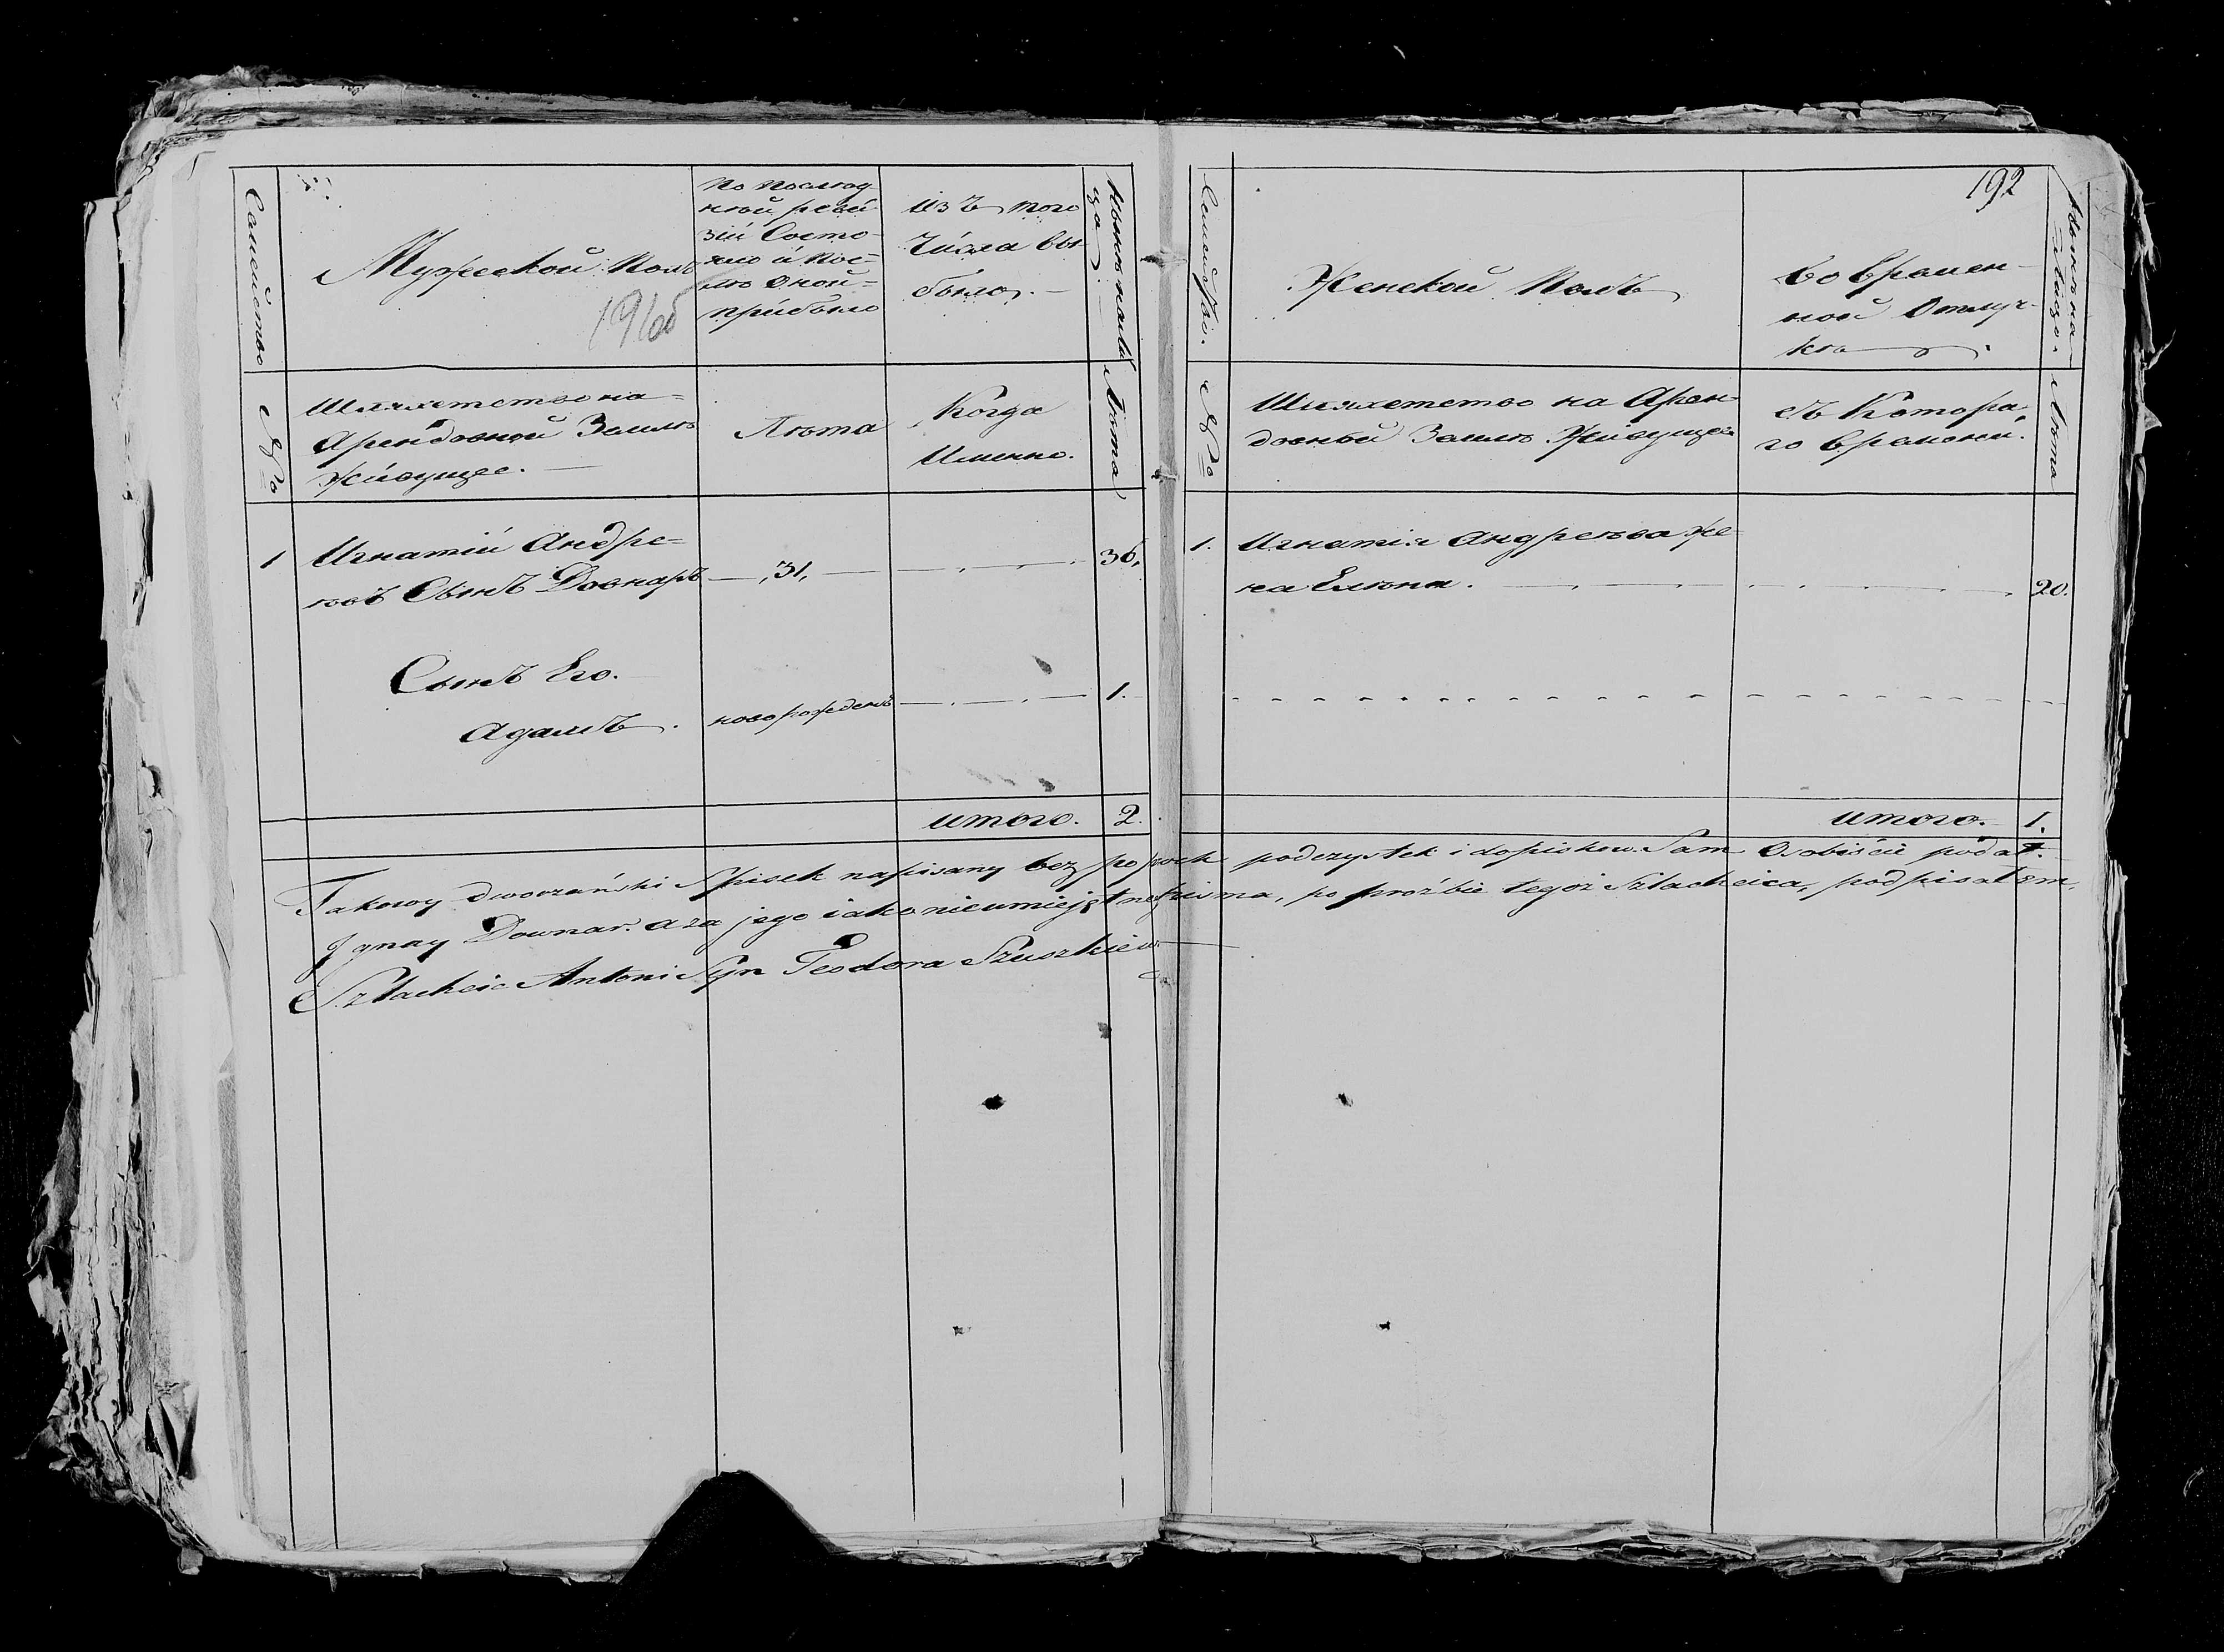 Семейство
Мужеской Полъ
191об
По послед
ней реви
зіи Состо-
яло и пос=
лѣ оной=
прибыло
Изъ того
Числа вы-
было.
Нынѣ на ли
цо
№
Шляхетство на=
Арендовной Землѣ
Живущее.
Лѣта
Когда
Именно.
Лѣта
1 Игнатій Андре=
евъ Сынъ Довнаръ 31, 36,
Сынъ Его.
Адамъ. новорожденъ 1.
итого. 2.
192
Семейство.
Женской Полъ
Во времен-
ной Отлуч-
кѣ
Нынѣ на-
лицо.
№
Шляхетство на Арен-
довной Землѣ Живущее
съ Котора,
го времени.
Лѣта
1. Игнатія Андреева же-
на Елѣна. 20.
итого. 1.
Takowy dworzański Spisek napisany bez poprawek podczystek i dopiskow. Sam Osobiście podał.
Ignacy Downar. a za jego iako nieumiejętnego pisma, po proźbie tegoż Szlachcica, podpisałem,
Szlachcic Antoni Syn Teodora Szuszkiew